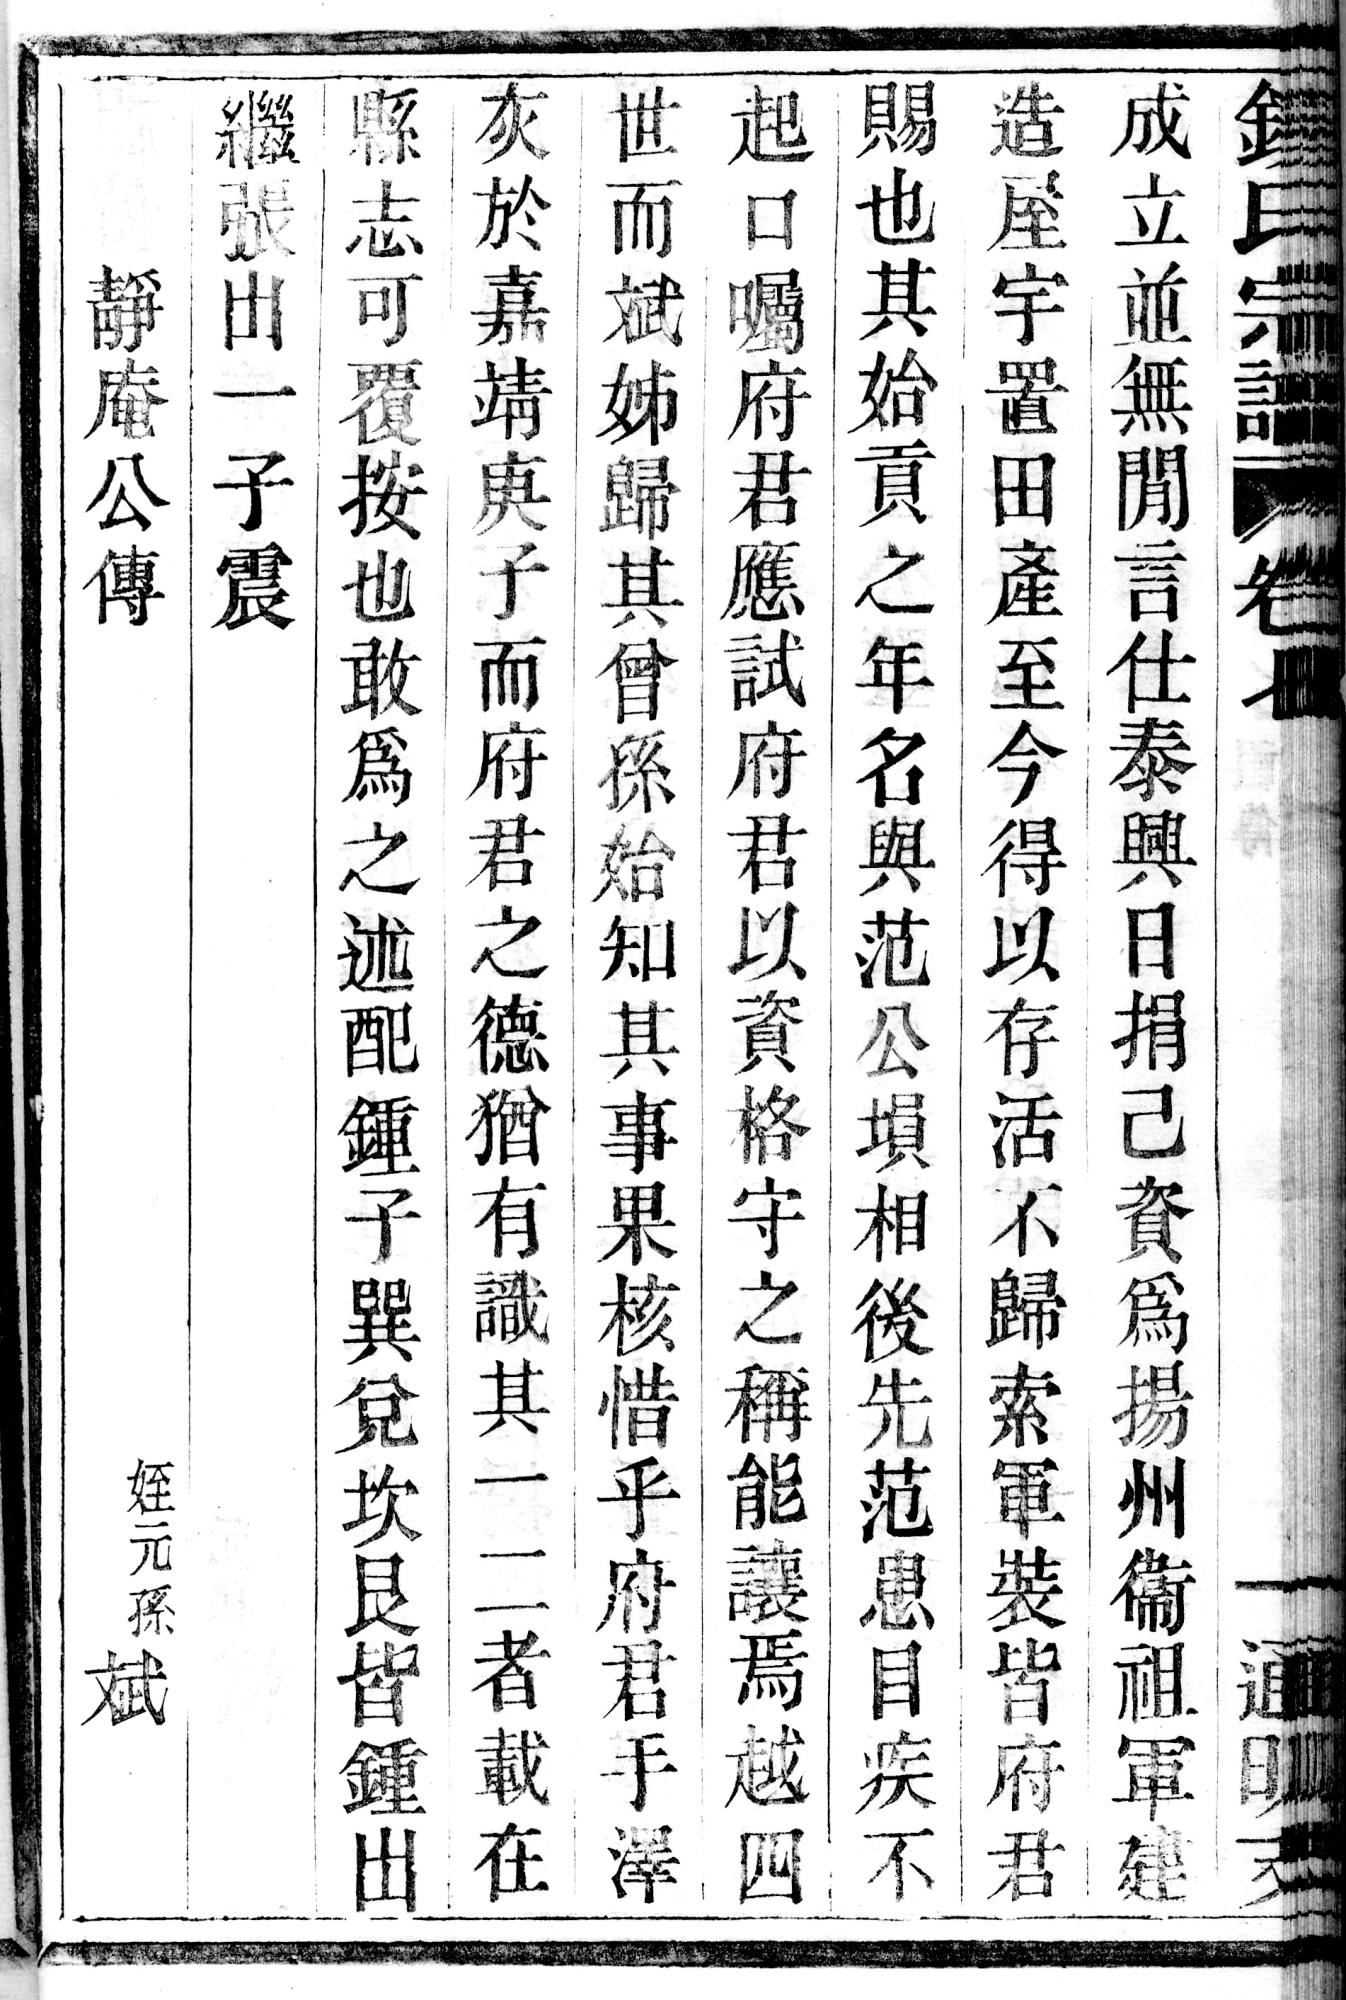 氏宗譜 卷
成立並無閒言仕泰興日捐己資爲揚州衞祖軍建
造屋宇置田產至今得以存活不歸索軍裝皆府君
賜也其始貢之年名與范公塤相後先范患目疾不
起口囑府君應試府君以資格守之稱能讓焉越四
世而斌姊歸其曾孫始知其事果核惜乎府君手澤
灰於嘉靖庚子而府君之德猶有識其一二者載在
縣志可覆按也敢爲之述配鍾子巽兌坎艮皆鍾出
繼張出一子震
靜庵公傳
姪元孫斌